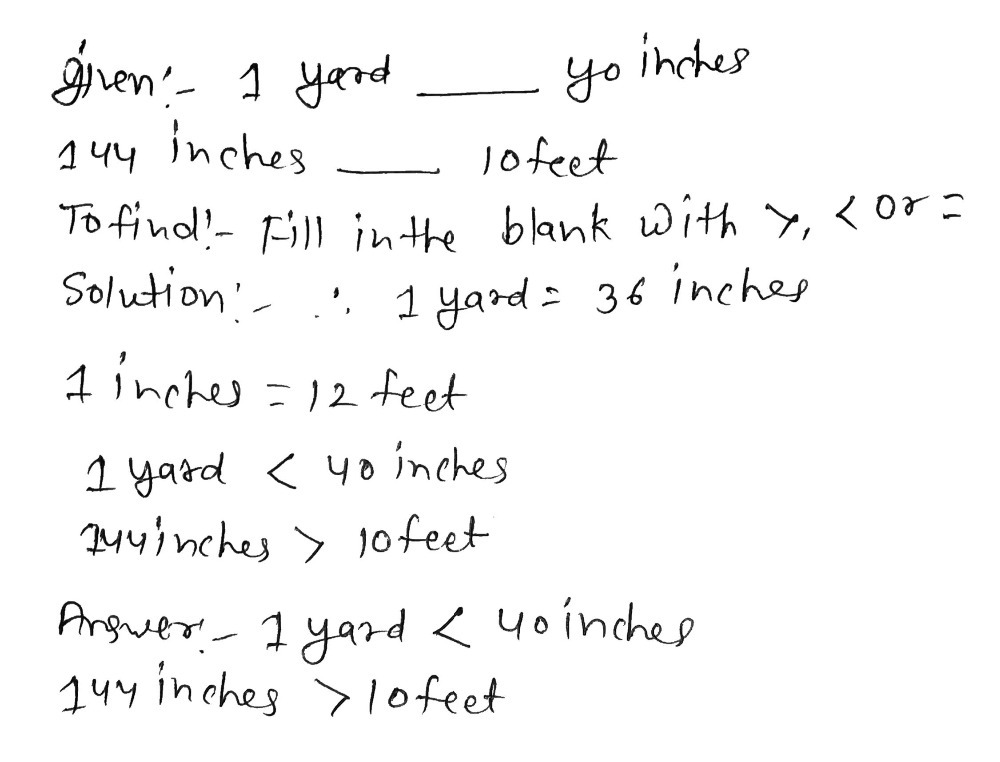 given:- 1 yard ____ 40 inches
144 inches ____ 10 feet
To find:- Fill in the blank with >, < or =
Solution:- ∵ 1 yard = 36 inches
1 inches = 12 feet
1 yard < 40 inches
144 inches > 10 feet
Answer:- 1 yard < 40 inches
144 inches > 10 feet